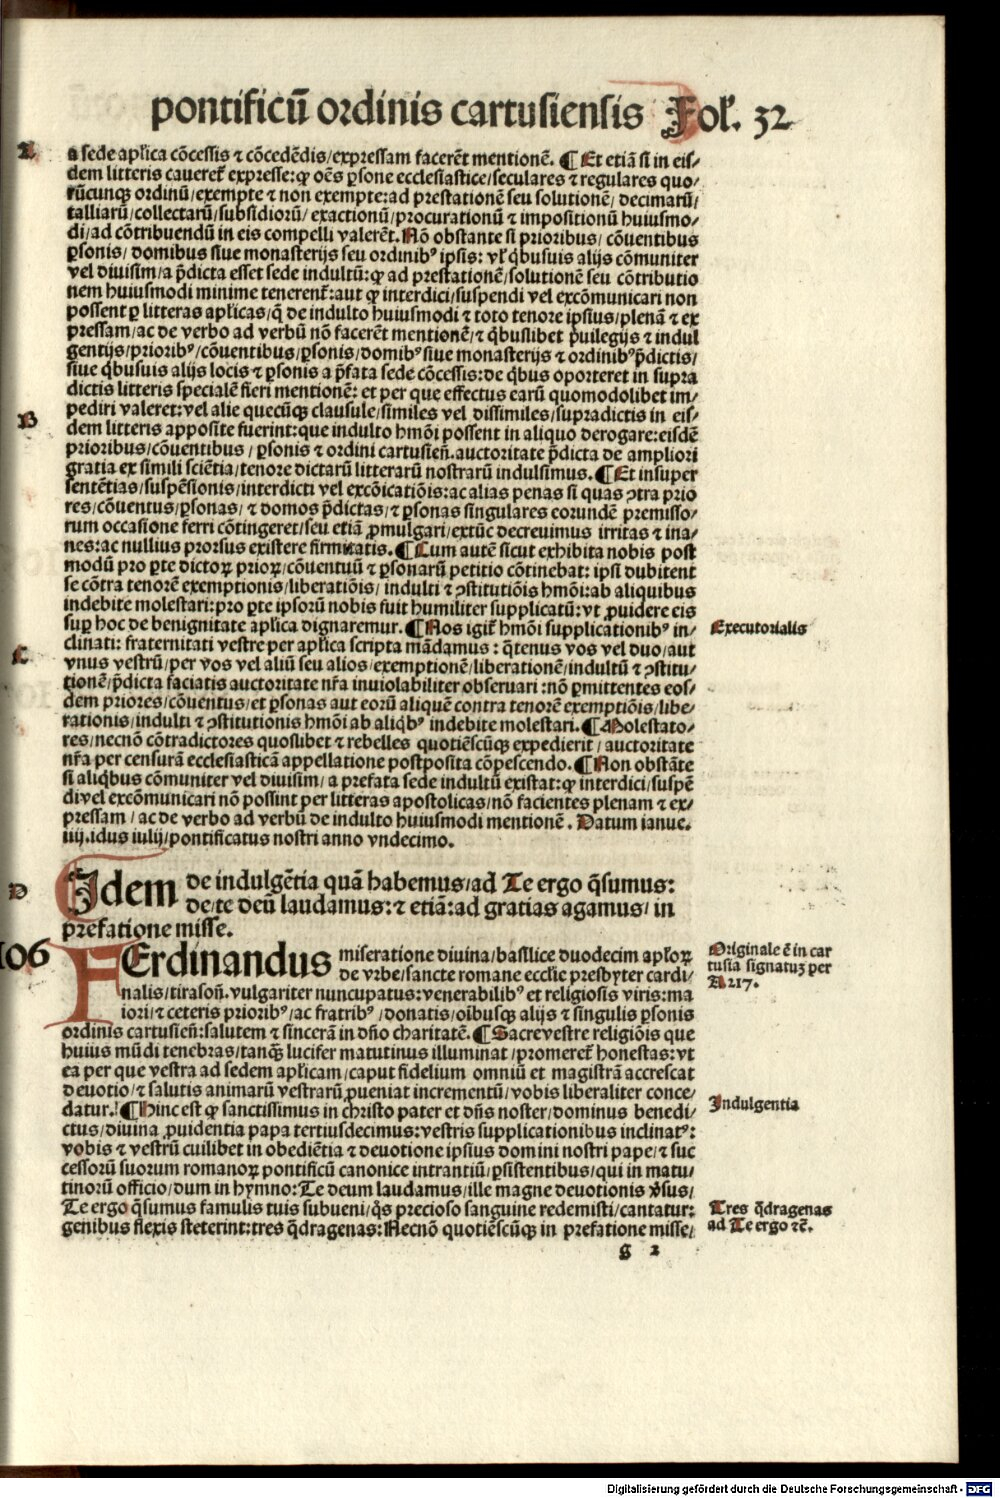 pontificū ordinis cartusiensis Fol'. 32
A
a sede apl'ica cōcessis ⁊ cōcedēdis/expressam facerēt mentionē. ¶ Et etiā si in eis/
dem litteris caueret̄ expresse: ꝙ oēs ꝑsone ecclesiastice/seculares ⁊ regulares quo/
rūcunqꝫ ordinū/exempte ⁊ non exempte: ad prestationē seu solutionē/ decimarū/
talliarū/collectarū/subsidiorū/ exactionū/procurationū ⁊ impositionū huiusmo/
di/ad cōtribuendū in eis compelli valerēt. Nō obstante si prioribus/ cōuentibus
ꝑsonis/ domibus siue monasterijs seu ordinibꝰ ipsis: vl' q̄busuis alijs cōmuniter
vel diuisim/a p̄dicta esset sede indultū: ꝙ ad prestationē/solutionē seu cōtributio
nem huiusmodi minime tenerent̄: aut ꝙ interdici/suspendi vel excōmunicari non
possent ꝑ litteras apl'icas/q̄ de indulto huiusmodi ⁊ toto tenore ipsius/plenā ⁊ ex
pressam/ac de verbo ad verbū nō facerēt mentionē/⁊ q̄buslibet p̄uilegijs ⁊ indul
gentijs/prioribꝰ/cōuentibus/ꝑsonis/domibꝰ siue monasterijs ⁊ ordinibꝰ p̄dictis/
siue q̄busuis alijs locis ⁊ ꝑsonis a p̄fata sede cōcessis: de q̄bus oporteret in supra
dictis litteris specialē fieri mentionē: et per que effectus earū quomodolibet im/
pediri valeret: vel alie quecūqꝫ clausule/similes vel dissimiles/supradictis in eis/
B
dem litteris apposite fuerint: que indulto hmōi possent in aliquo derogare: eisdē
prioribus/cōuentibus / ꝑsonis ⁊ ordini cartusien̄. auctoritate p̄dicta de ampliori
gratia ex simili sciētia/tenore dictarū litterarū nostrarū indulsimus. ¶ Et insuper
sentētias/suspēsionis/interdicti vel excōicatiōis: ac alias penas si quas ꝯtra prio
res/cōuentus/ꝑsonas/ ⁊ domos p̄dictas/⁊ ꝑsonas singulares eorundē premisso/
rum occasione ferri cōtingeret/seu etiā ꝓmulgari/extūc decreuimus irritas ⁊ ina/
nes: ac nullius prorsus existere firmitatis. ¶ Cum autē sicut exhibita nobis post
modū pro ꝑte dictoꝝ prioꝝ/cōuentuū ⁊ ꝑsonarū petitio cōtinebat: ipsi dubitent
se cōtra tenorē exemptionis/liberatiōis/ indulti ⁊ ꝯstitutiōis hmōi: ab aliquibus
indebite molestari: pro ꝑte ipsorū nobis fuit humiliter supplicatū: vt ꝓuidere eis
suꝑ hoc de benignitate apl'ica dignaremur. ¶ Nos igit̄ hmōi supplicationibꝰ in/
Executorialis
clinati: fraternitati vestre per apl'ica scripta mādamus : q̄tenus vos vel duo/aut
C
vnus vestrū/per vos vel aliū seu alios/exemptionē/liberationē/indultū ⁊ ꝯstitu/
tionē/p̄dicta faciatis auctoritate nr̄a inuiolabiliter obseruari : nō ꝑmittentes eos/
dem priores/cōuentus/et ꝑsonas aut eorū aliquē contra tenorē exemptiōis/libe/
rationis/indulti ⁊ ꝯstitutionis hmōi ab aliq̄bꝰ indebite molestari. ¶ Molestato/
res/necnō cōtradictores quoslibet ⁊ rebelles quotiēscūqꝫ expedierit / auctoritate
nr̄a per censurā ecclesiasticā appellatione postposita cōpescendo. ¶ Non obstāte
si aliq̄bus cōmuniter vel diuisim/ a prefata sede indultū existat: ꝙ interdici/suspē
di vel excōmunicari nō possint per litteras apostolicas/nō facientes plenam ⁊ ex/
pressam/ ac de verbo ad verbū de indulto huiusmodi mentionē. Datum ianue.
iiij. idus iulij/pontificatus nostri anno vndecimo.
D
Idem de indulgētia quā habemus/ad Te ergo q̄sumus:
de/te deū laudamus: ⁊ etiā: ad gratias agamus/ in
prefatione misse.
106
FErdinandus miseratione diuina/basilice duodecim apl'oꝝ
Originale ē in car
de vrbe/sancte romane eccl'ie presbyter cardi/
tusia signatuꝫ per
nalis/tirason̄. vulgariter nuncupatus: venerabilibꝰ et religiosis viris: ma
A 217.
iori/⁊ ceteris prioribꝰ/ac fratribꝰ/donatis/oībusqꝫ alijs ⁊ singulis ꝑsonis
ordinis cartusien̄: salutem ⁊ sincerā in dn̄o charitatē. ¶ Sacre vestre religiōis que
huius mūdi tenebras/tanqꝫ lucifer matutinus illuminat/promeret̄ honestas: vt
ea per que vestra ad sedem apl'icam/caput fidelium omniū et magistrā accrescat
deuotio/⁊ salutis animarū vestrarū ꝓueniat incrementū/vobis liberaliter conce/
datur. ¶ Hinc est ꝙ sanctissimus in christo pater et dn̄s noster/dominus benedi/
Indulgentia
ctus/diuina ꝓuidentia papa tertiusdecimus: vestris supplicationibus inclinatꝰ:
vobis ⁊ vestrū cuilibet in obediētia ⁊ deuotione ipsius domini nostri pape/⁊ suc
cessorū suorum romanoꝝ pontificū canonice intrantiū/ꝑsistentibus/qui in matu/
tinorū officio/dum in hymno: Te deum laudamus/ille magne deuotionis v̄sus/
Te ergo q̄sumus famulis tuis subueni/q̄s precioso sanguine redemisti/cantatur:
Tres q̄dragenas
genibus flexis steterint: tres q̄dragenas: Necnō quotiēscūqꝫ in prefatione misse/
ad Te ergo ⁊c̄.
g 2
Digitalisierung gefördert durch die Deutsche Forschungsgemeinschaft - DFG